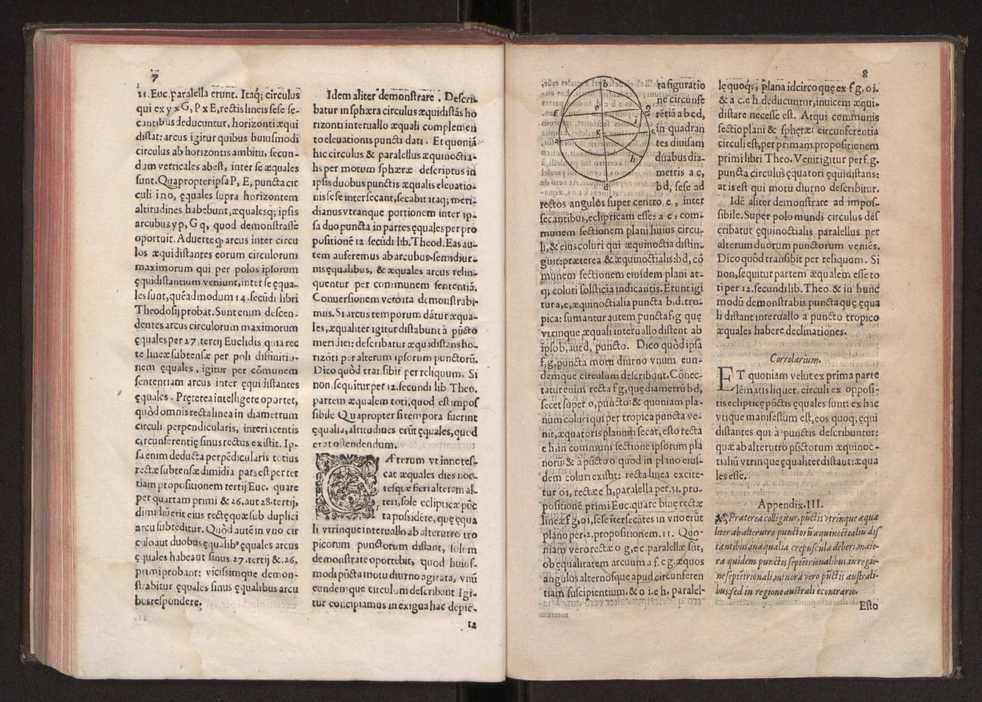 7
31. Euc. parallela erunt. Itaq; circulus
qui ex y x G, P x E, rectis lineis sese se-
cantibus deducuntur, horizonti æqui
distat: arcus igitur quibus huiusmodi
circulus ab horizontis ambitu, secun-
dam verticales abest, inter se æquales
sunt. Quapropter ipsa P, E, puncta cir
culi ino, ęquales supra horizontem
altitudines habebunt, æqualesq; ipsis
arcubus y p, G q, quod demonstrasse
oportuit. Aduerte q; arcus inter circu
los æquidistantes eorum circulorum
maximorum qui per polos ipsorum
ęquidistantium veniunt, inter se æqua-
les sunt, quēadmodum 14. secūdi libri
Theodosij probat. Sunt enim descen-
dentes arcus circulorum maximorum
ęquales per 27. tertij Euclidis quia rec
te lineæ subtensæ per poli
nem ęquales, igitur per cōmunem
sententiam arcus inter equidistantes
ęquales. Pręterea intelligere oportet,
quòd omnis recta linea in diametrum
circuli perpendicularis, interiacentis
circunferentię sinus rectus existit. Ip-
sa enim deducta perpēdicularis totius
rectæ subtensæ dimidia pars est per ter
tiam propositionem tertij Euc. quare
per quartam primi & 26. aut 28. tertij,
dimidij erit eius rectę quæ sub duplici
arcu subteditur. Quòd autē in vno cir
culo aut duobus ęqualibꝰ equales arcus
ęquales habeāt sinus 27. tertij & 26.
primi probant: vicissimque demon-
strabitur ęquales sinus ęqualibus arcu
bus respondere.
Idem aliter demonstrare. Descri-
batur in sphæra circulus æquidistās ho
rizonti interuallo æquali complemen
to eleuationis puncti dati. Et quoniā
hic circulus & parallelus æquinoctia-
lis per motum sphæræ descriptus in
ipsis duobus punctis æqualis eleuatio-
nis sese intersecant, secabit itaq; meri-
dianus vtranque portionem inter ip-
sa duo puncta in partes ęquales per pro
positionē 12. secūdi lib. Theod. Eas au-
tem auferemus ab arcubus semidiur-
nis ęqualibus, & æquales arcus relin-
quentur per communem sententiā.
Conuersionem vero ita demonstrabi-
mus. Si arcus temporum dātur æqua-
les, æqualiter igitur distabunt à pūcto
meridiei: describatur æquidistans ho-
rizōti per alterum ipsorum punctorū.
Dico quòd trāsibit per reliquum. Si
non, sequitur per 12. secundi lib Theo.
partem æqualem toti, quod est impos
sibile Quapropter si tempora fuerint
equalia, altitudines erūt ęquales, quod
erat ostendendum.
CÆterum vt innotes-
cat æquales dies noc-
tesque fieri alteram al-
tera, sole eclipticæ pūc
ta possidere, quę ęqua
li vtrinque interuallo ab alterutro tro
picorum punctorum distant, solem
demonstrare oportebit, quod huius-
modi pūcta motu diurno agitata, vnū
eundemque circulum describunt Igi-
tur concipiamus in exigua hac depic-
ta
8
ta figuratio
ne circunfe
rētiā a b c d,
in quadran
tes diuisam
duabus dia-
metris a c,
b d, sese ad
rectos angulos super centro e, inter
secantibus, eclipticāti esse: a c, com-
munem sectionem plani huius circu-
li, & eius coluri qui æquinoctia distin-
guit: præterea & æquinoctialis: b d, cō
munem sectionem eiusdem plani at-
q; coluri solsticia indicantis. Erunt igi
tur a, c, æquinoctialia puncta b d. tro-
pica: sumantur autem puncta f, g quę
vtrinque æquali interuallo distent ab
ipso b, aut d, puncto. Dico quòd ipsa
f, g, puncta motu diurno vnum eun-
demque circulum describūt. Cōnec-
tatur enim recta f g, quę diametrū b d,
secet super o, pūcto: & quoniam pla-
num coluri qui per tropica puncta ve-
nit, æquatoris planum secat, esto recta
e h in communi sectione ipsorum pla
norū: & à pūcto o quod in plano eius-
dem coluri existit: recta linea excite-
tur oi, rectæ e h, parallela per 31. pro-
positionē primi Euc. quare binę rectæ
lineæ f g, o i, sese intersecātes in vno erūt
plano per 2. propositionem. 11. Quo-
niam vero rectæ o g, e c parallelæ sūt,
ob equalitatem arcuum a f. c g. æquos
angulos alternosque apud circunferen
tiam suscipientium. & o i. e h, paralel-
lę quoq;, plana idcirco quę ex f g, oi,
& a c. e h. deducuntur, inuicem æqui-
distare necesse est. Atqui communis
sectio plani & spheræ circunferentia
circuli est, per primam propositionem
primi libri Theo. Venit igitur per f. g.
puncta circulus ęquatori ęquidistans:
at is est qui motu diurno describitur.
Idē aliter demonstrate ad impos-
sibile. Super polo mundi circulus dēs
cribatur ęquinoctialis parallelus per
alterum duorum punctorum veniēs.
Dico quòd transibit per reliquum. Si
non, sequitur partem æqualem esse to
ti per 12. secundi lib. Theo. & in hunc
modū demonstrabis puncta quę ęqua
li distant interuallo a puncto tropico
æquales habere declinationes.
Correlarium.
ET quoniam velut ex prima parte
lēmatis liquet. circuli ex opposi-
tis eclipticę pūctis ęquales sunt: ex hac
vtique manifestum est, eos quoq; ęqui
distantes qui à punctis describuntur:
quæ ab alterutro pūctorum æquinoc-
tialiū vtrinque equaliter distāt: æqua
les esse.
Appendix. III.
Præterea colligitur, pūctis vtrinque æqua
liter ab alterutro punctorū æquinoctialiū dis
tantibus inæqualia crepuscula deberi: maio-
ra quidem punctis septētrionalibus in regio
ne septētrionali, minora vero pūctis australi-
bus, sed in regione australi econtrario.
Esto